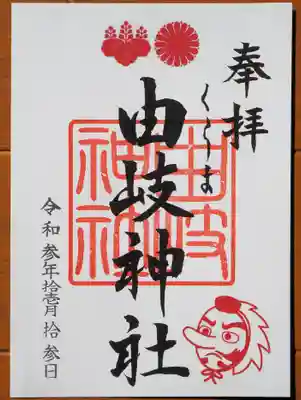 奉拝
くらま
由岐神社
由岐神社
令和参年拾壱月拾参日